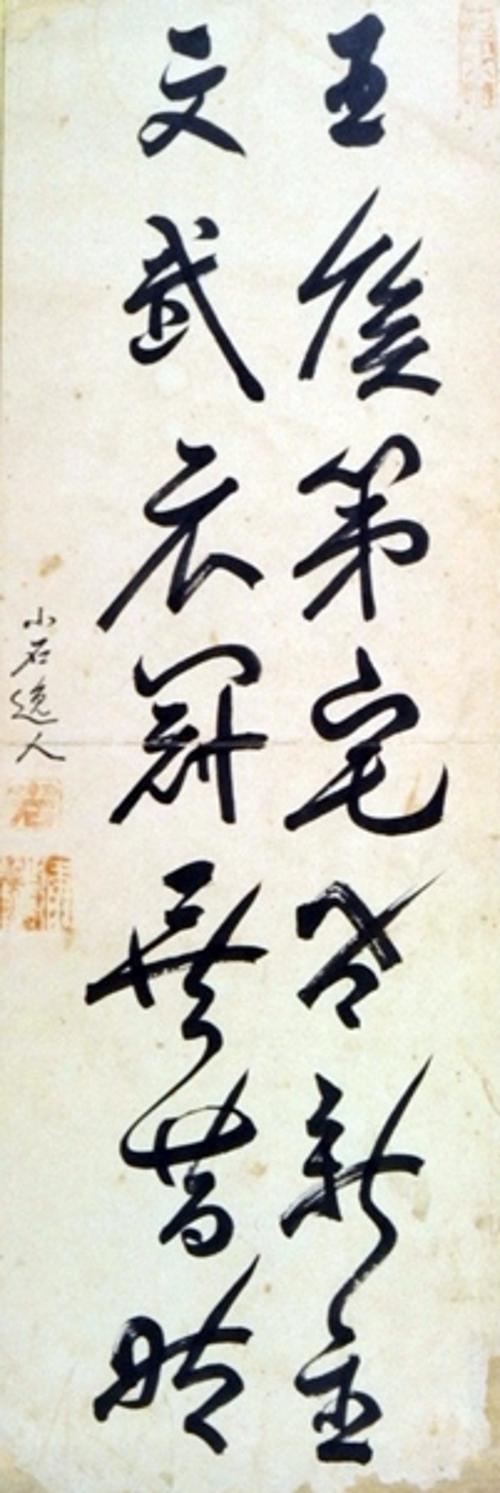 王侯第宅皆新主
文武衣冠異昔時
小石逸人